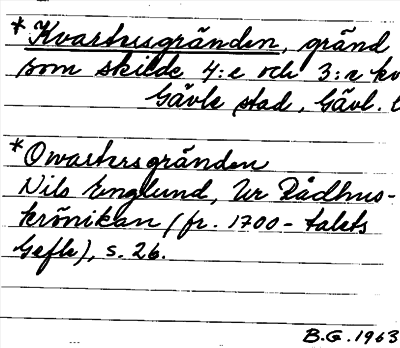 * Kvartersgränden, gränd
som skilde 4:e och 3:e kv
Gävle stad, Gävl. l
* Qwartersgränden
Nils Englund, Ur Rådhus-
krönikan (fr. 1700-talets
Gefle), s. 26.
B.G. 1963